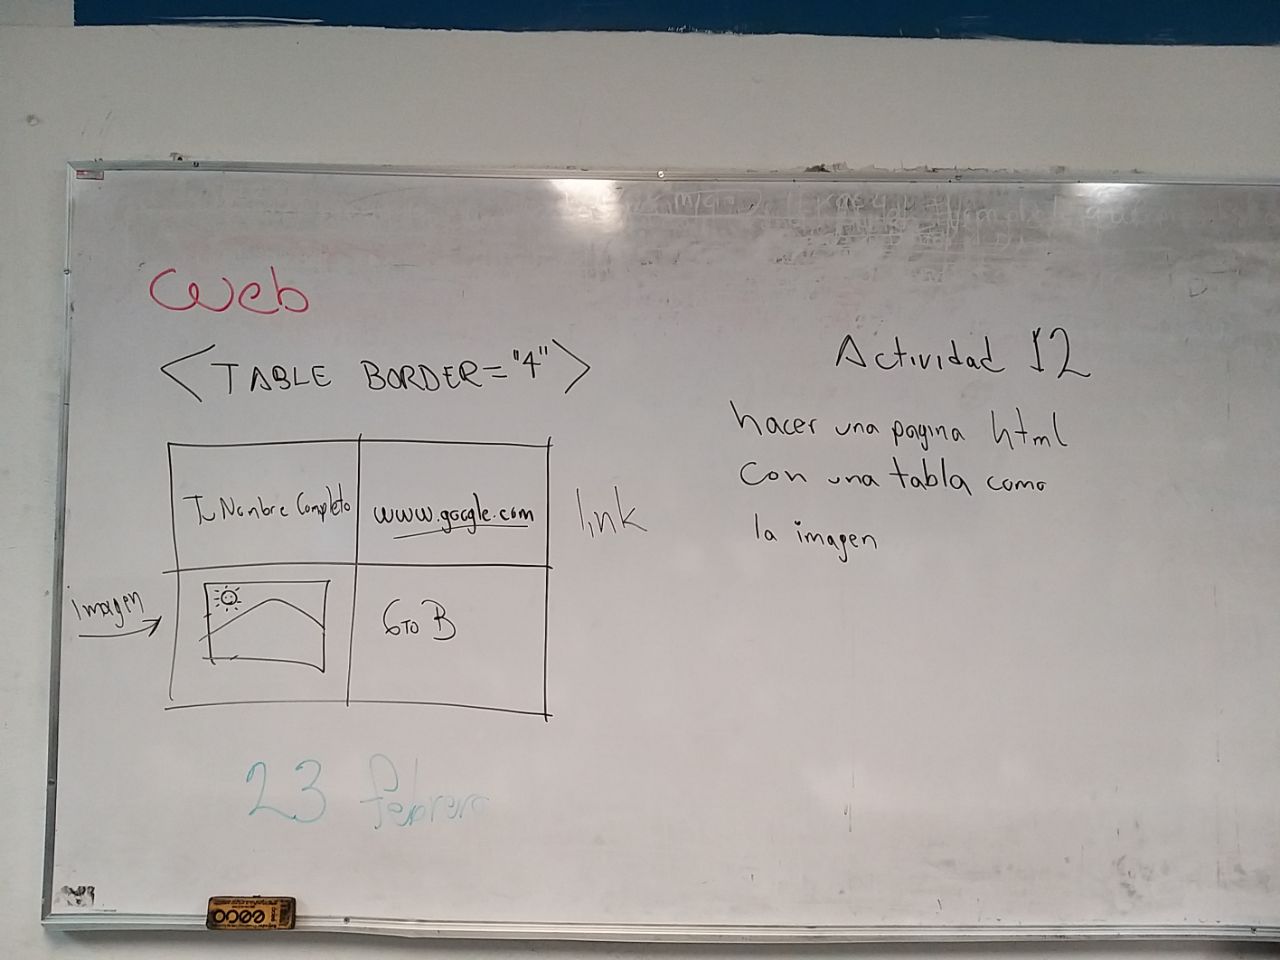 Web
<TABLE BORDER="4">
Tu Nombre Completo
www.google.com
link
imagen
6TO B
23 febrero
Actividad 12
hacer una pagina html
con una tabla como
la imagen